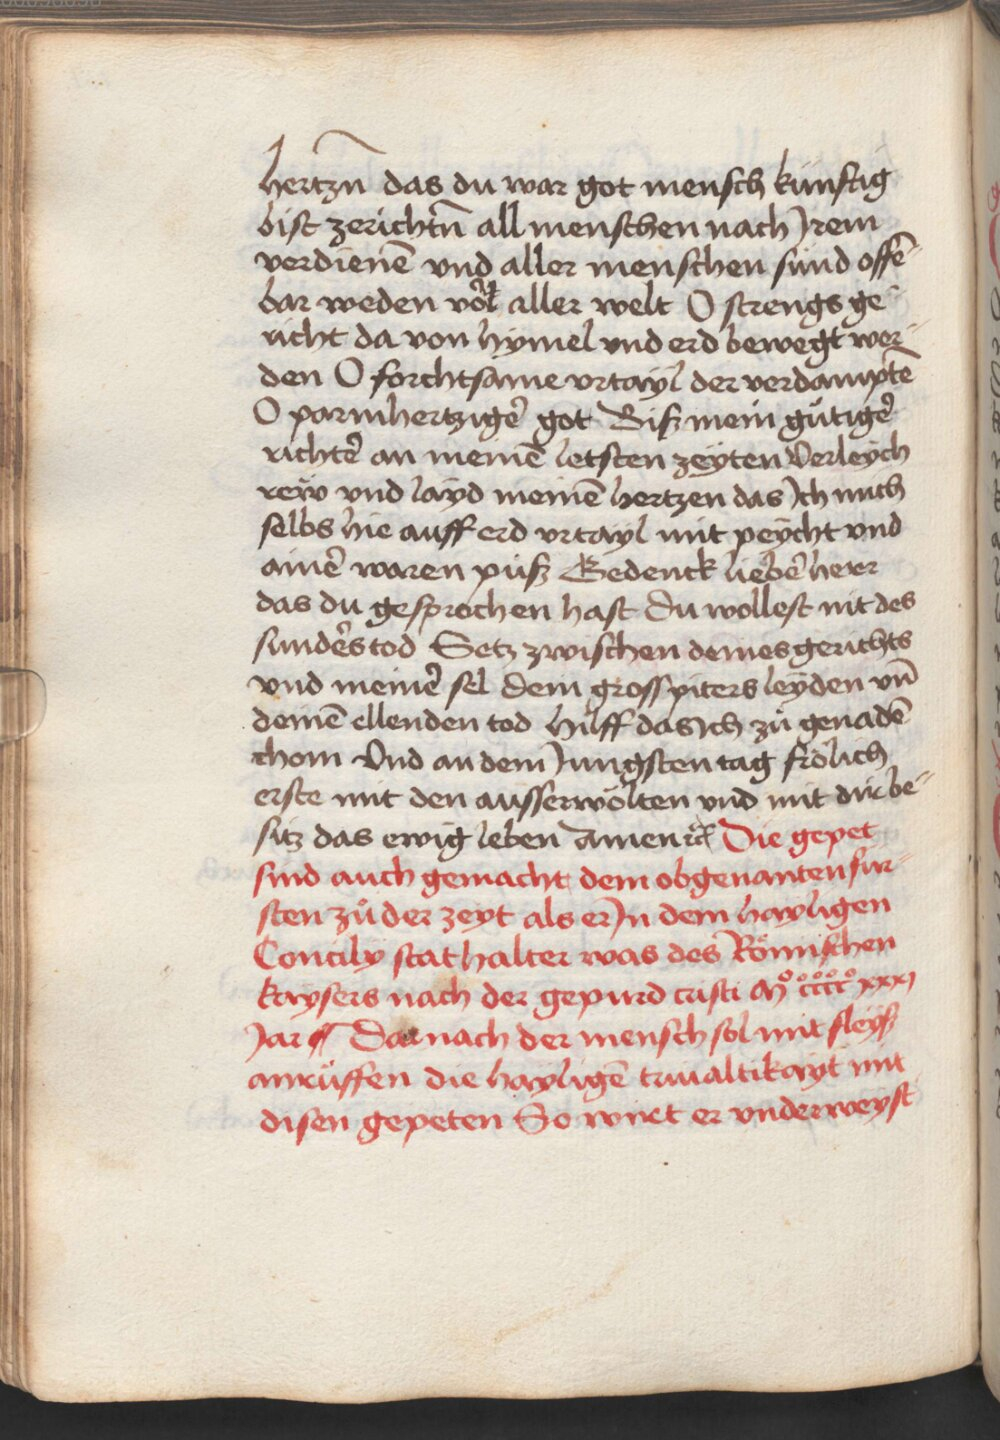 hertzn̄ das du war got mensch künftig
bist zerichtn̄ all menschen nach Jrem
verdienē vnd aller menschen sünd offē-
bar weden vor aller welt O strengs ge-
richt da von hymel vnd erd bewegt wer-
den O forchtsame vrtayl der verdamptē
O parmhertzigeꝛ got Biß mein gütigeꝛ
richteꝛ an meinē letsten zeÿten Verleÿch
reẅ vnd laÿd meinē hertzen das Jch mich
selbs hie auff erd vrtayl mit peÿcht vnd
aineꝛ waren puß Gedenck liebeꝛ herr
das du gesprochen hast Du wollest nit des
sundeꝛs tod Setz zwischen deines gerichts
vnd meineꝛ sel dein gross piters leÿden vn̄
deinē ellenden tod hilff das Jch zů genadē
chom Vnd an dem Jungsten tag frölich
erste mit den ausserwölten vnd mit dir be-
sitz das ewig leben Amen Die gepet
sind auch gemacht dem obgenanten für-
sten zů der zeyt als er Jn dem hayligen
Concilÿ stathalter was des Römischen
kaysers nach der gepurd cristi Mº ccccº xxxj
Jar ¶ Dar nach der mensch sol mit fleÿß
anrüffen die hayligē triualtikayt mit
disen gepeten So wirt er vnderweyst